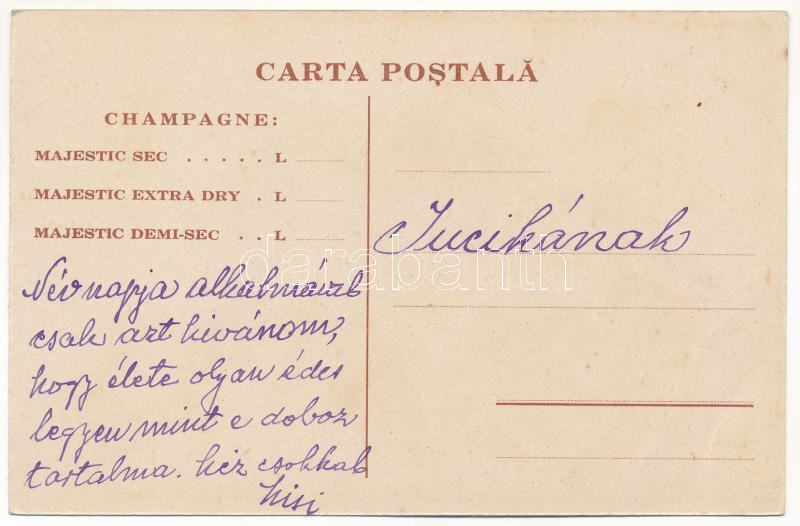 CARTA POȘTALĂ
CHAMPAGNE:
MAJESTIC SEC . . . . . L
MAJESTIC EXTRA DRY . L
MAJESTIC DEMI-SEC . . L
Jucikának
darabanth
Névnapja alkalmával
csak azt kivánom,
hogy élete olyan édes
legyen mint e doboz
tartalma. kéz csokkal
Kisi